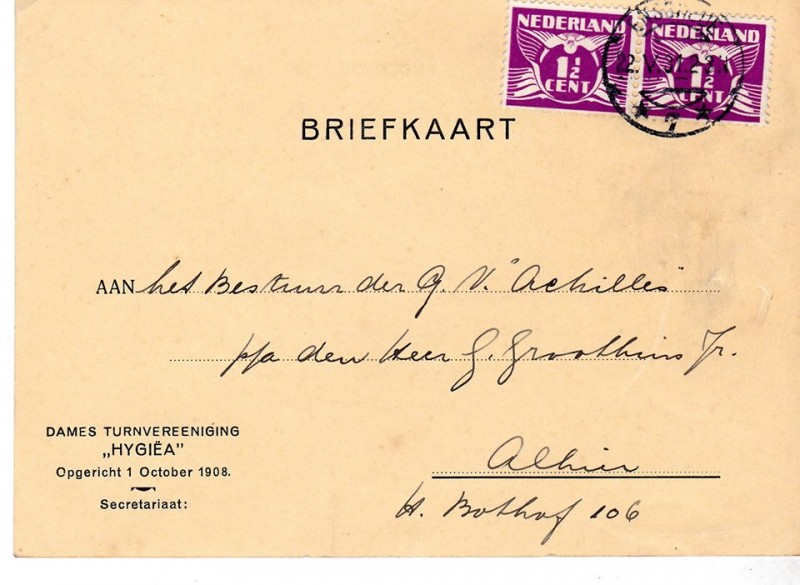 NEDERLAND
1½
CENT
NEDERLAND
1½
CENT
22.V 31.2
7
BRIEFKAART
AAN het Bestuur der G.V. "Achilles"
p/a den Heer G. Groothuis Jr.
Alhier
H. Bothof 106
DAMES TURNVEREENIGING
„HYGIËA”
Opgericht 1 October 1908.
Secretariaat: